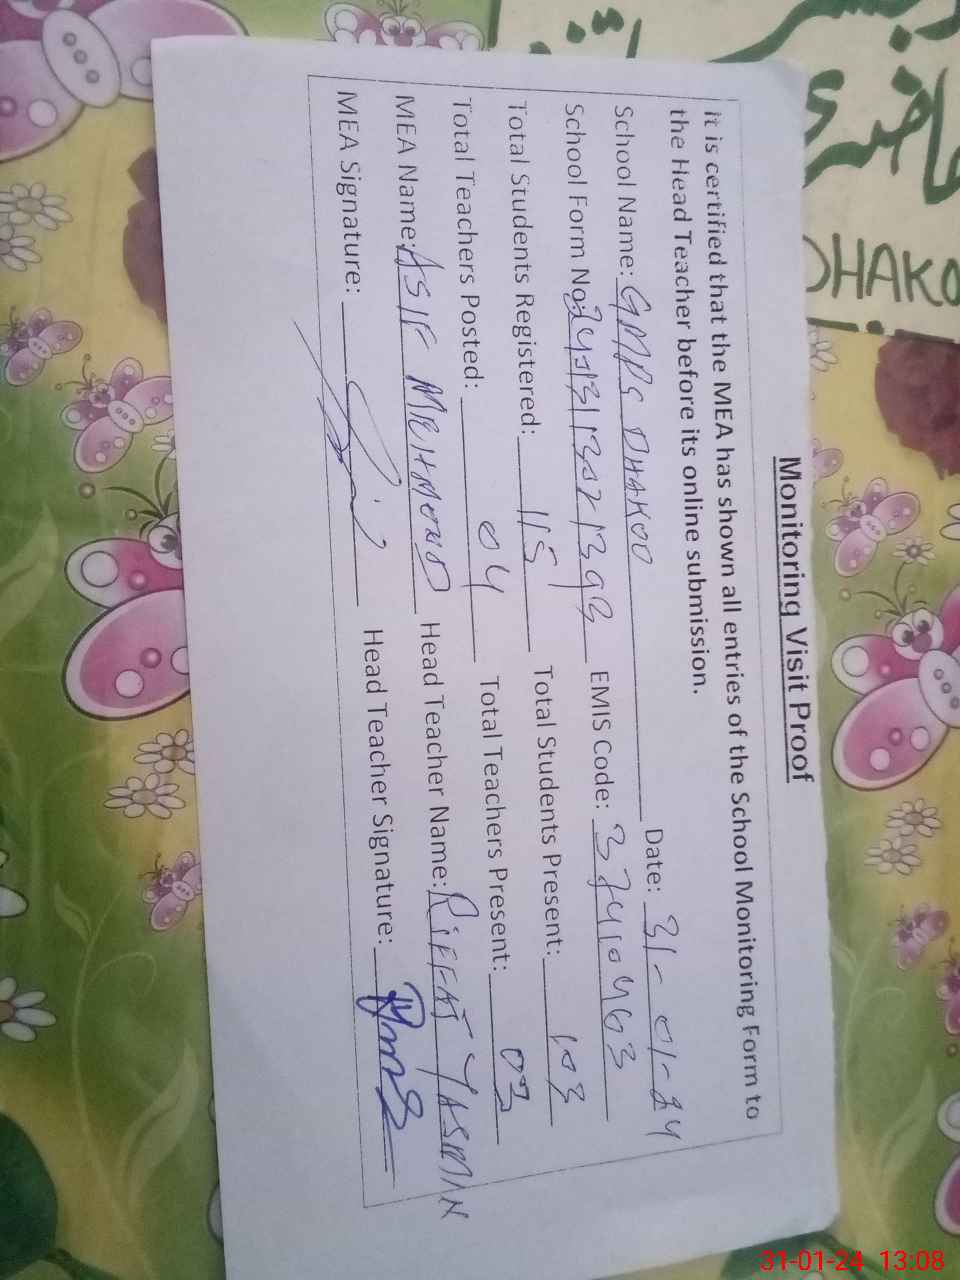 Monitoring Visit Proof
it is certified that the MEA has shown all entries of the School Monitoring Form to
the Head Teacher before its online submission.
School Name: GMPS DHAKOO Date: 31-01-24
School Form No: EMIS Code: 37410463
Total Students Registered: 115 Total Students Present: 103
Total Teachers Posted: 04 Total Teachers Present: 03
MEA Name: ASIF MEHMOOD Head Teacher Name: RIFFAT YASMIN
MEA Signature: Head Teacher Signature:
DHAKO
31-01-24 13:08